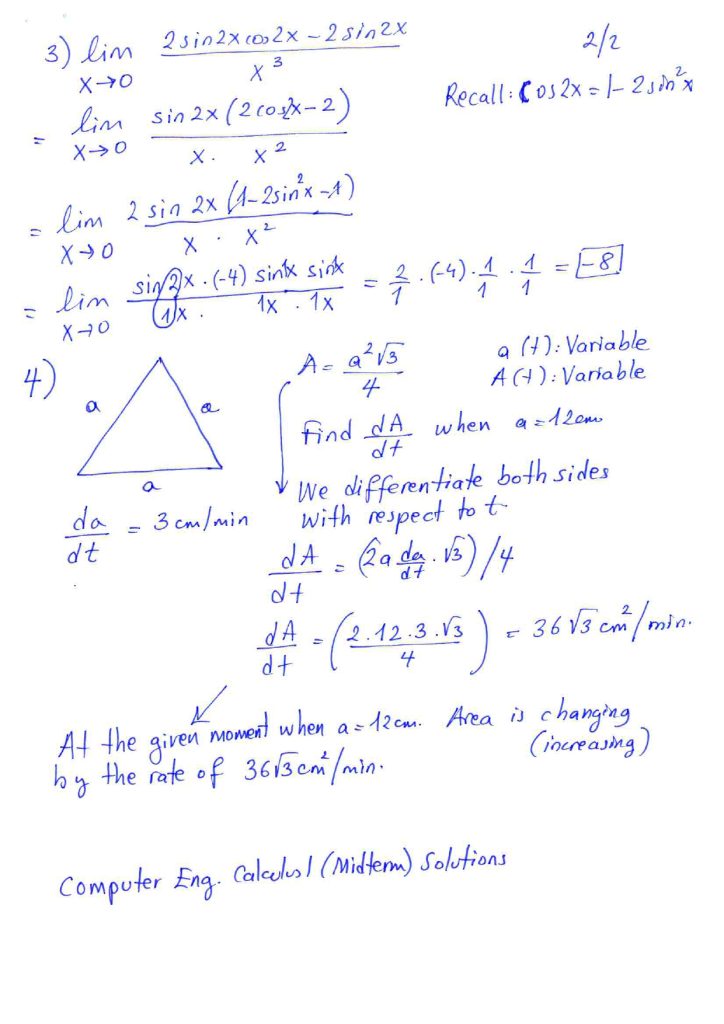 2/2
3) lim 2sin2x cos2x - 2sin2x
x→0 x³
Recall: Cos2x = 1- 2sin²x
= lim sin2x (2cos2x-2)
x→0 x. x²
= lim 2 sin 2x (1-2sin²x-1)
x→0 x . x²
= lim sin2x.(-4) sin1x sin1x = 2/1 . (-4). 1/1 . 1/1 = -8
x→0 1x . 1x . 1x
4)
a
a
a
da/dt = 3 cm/min
A = a²√3/4
a(t): Variable
A(t): Variable
Find dA/dt when a=12cm
We differentiate both sides
with respect to t
dA/dt = (2a da/dt . √3)/4
dA/dt = (2.12.3.√3/4) = 36√3 cm²/min.
At the given moment when a=12cm. Area is changing
(increasing)
by the rate of 36√3 cm²/min.
Computer Eng. Calculus I (Midterm) Solutions